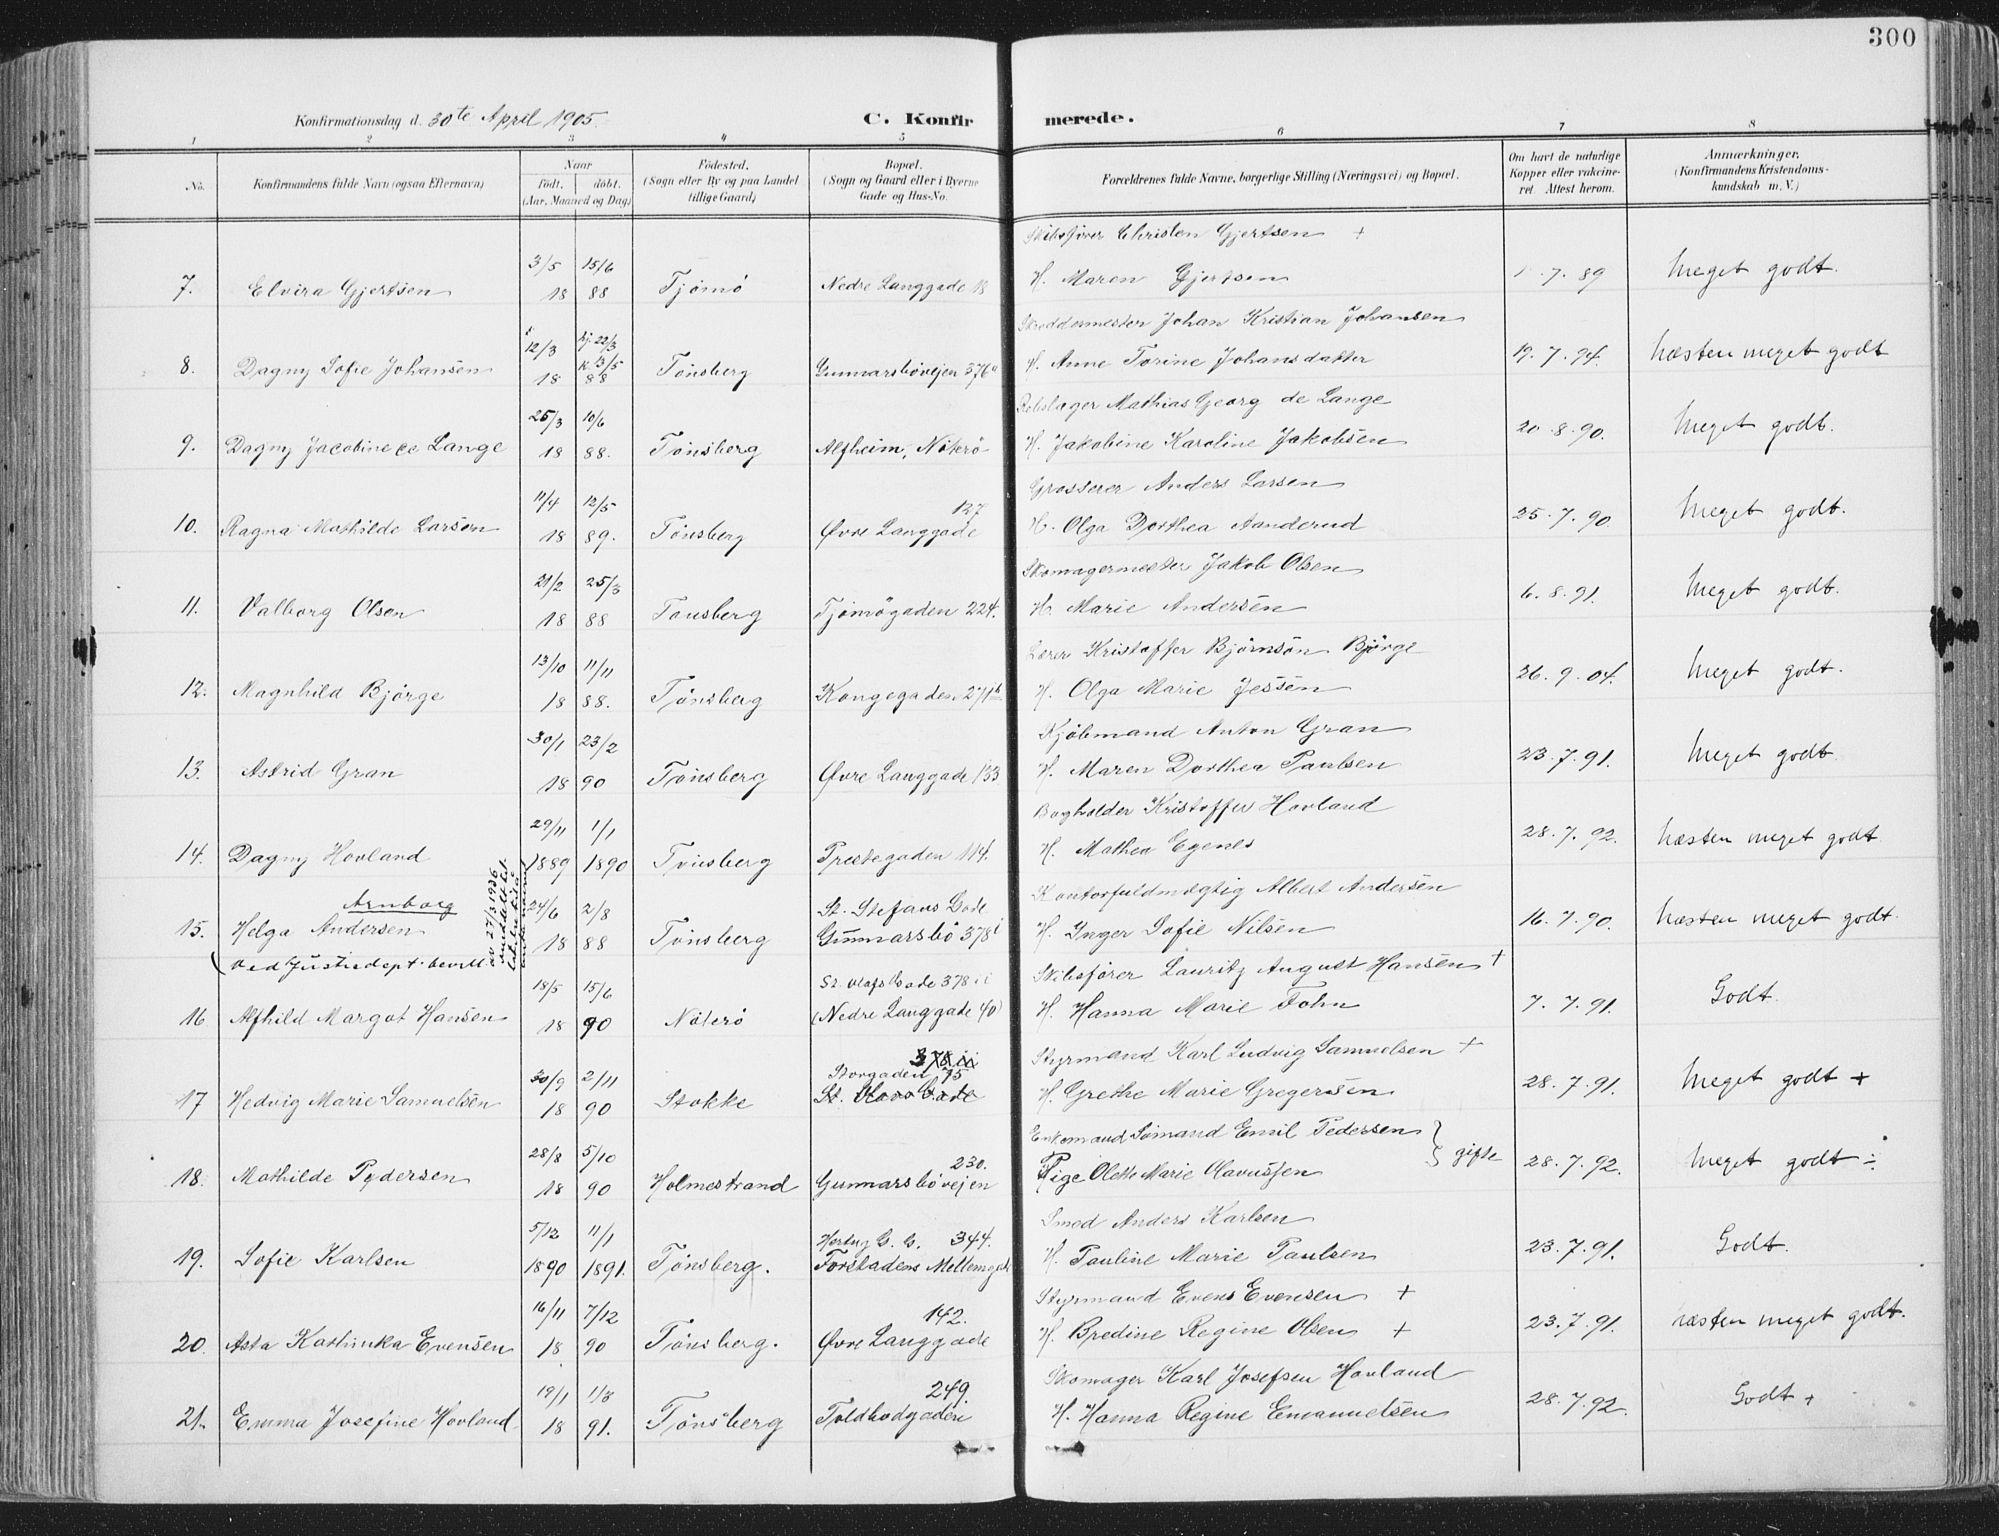 300
Konfirmationsdag d. 30te April 1905.
C. Konfirmerede.
1 2 3 4 5 6 7 8
No. Konfirmandens fulde Navn (ogsaa Efternavn) Naar født, døbt. (Aar, Maaned og Dag) Fødested. (Sogn eller By og paa Landet tillige Gaard) Bopæl. (Sogn og Gaard eller i Byerne Gade og Hus-No. Forældrenes fulde Navne, borgerlige Stilling (Næringsvei) og Bopæl. Om havt de naturlige Kopper eller vakcineret. Attest herom. Anmærkninger. (Konfirmandens Kristendomskundskab m. V.)
Skibsfører Christen Gjertsen +
3/5 15/6
7. Elvira Gjertsen 18 88 Tjømø Nedre Langgade 18 H. Maren Gjertsen 7.89 Meget godt.
Skreddermester Johan Kristian Johansen
12/3 hj. 22/3 k. 13/5
8. Dagny Sofie Johansen 18 88 Tønsberg Gunnarsbøvejen 376a H. Anne Torine Johansdatter 19.7.94. Næsten meget godt
Rebslager Mathias Georg de Lange
25/3 10/6
9. Dagny Jacobine de Lange 18 88. Tønsberg Alfheim, Nøterø H. Jakobine Karoline Jakobsen 20.8.90. Meget godt.
Grosserer Anders Larsen
11/4 12/5 127
10. Ragna Mathilde Larsen 18 89. Tønsberg Øvre Langgade H. Olga Dorthea Aanderud 25.7.90. Meget godt.
Skomagermester Jakob Olsen
21/2 25/3
11. Valborg Olsen 18 88 Tønsberg Tjømøgaden 224. H. Marie Andersen 6.8.91. Meget godt.
Lærer Kristoffer Bjørnsøn Bjørge
13/10 11/11
12. Magnhild Bjørge 18 88. Tønsberg Kongegaden 271b H. Olga Marie Jessen 26.9.04. Meget godt.
Kjøbmand Anton Gran
30/1 23/2
13. Astrid Gran 18 90 Tønsberg Øvre Langgade 133 H. Maren Dorthea Paulsen 23.7.91. Meget godt.
Bogholder Kristoffer Hovland
29/11 1/1
14. Dagny Hovland 1889 1890 Tønsberg Prestegaden 114. H. Mathea Egenes 28.7.92. Næsten meget godt
Kontorfuldmægtig Albert Andersen
Arnborg 24/6 2/8 St. Stefans Gade
15. Helga Andersen 18 88 Tønsberg Gunnarsbø 378i H. Inger Sofie Nilsen 16.7.90. Næsten meget godt.
(Ved Justisdept. bevill. av 27/3 1926 meddelt
Skibsfører Lauritz August Hansen +
18/5 15/6 St. Olafs Gade 378ii
16 Alfhild Margot Hansen 18 90 Nøterø (Nedre Langgade 40) H. Hanna Marie Fohn 7.7.91. Godt.
378ii
Styrmand Karl Ludvig Samuelsen +
30/9 2/11 Storgaden 75
17 Hedvig Marie Samuelsen 18 90 Stokke St. Olavs Gade H. Grethe Marie Gregersen 28.7.91. Meget godt +
Enkemand Sømand Emil Pedersen } gifte
28/8 5/10 230.
18. Mathilde Pedersen 18 90 Holmestrand Gunnarsbøvejen Pige Olette Marie Olavussen 28.7.92. Meget godt ÷
Smed Anders Karlsen
5/12 11/1 Hertug G. G. 344.
19. Sofie Karlsen 1890 1891. Tønsberg. Forstadens Mellemgade H. Pauline Marie Paulsen 23.7.91. Godt.
Styrmand Evens Evensen +
16/11 7/12 142.
20. Asta Kathinka Evensen 18 90 Tønsberg. Øvre Langgade H. Bredine Regine Olsen + 23.7.91. Næsten meget godt.
Skomager Karl Josefsen Hovland
19/1 1/3 249.
21. Emma Josefine Hovland 18 91. Tønsberg Toldbodgaden H. Hanna Regine Emanuelsen 28.7.92. Godt +